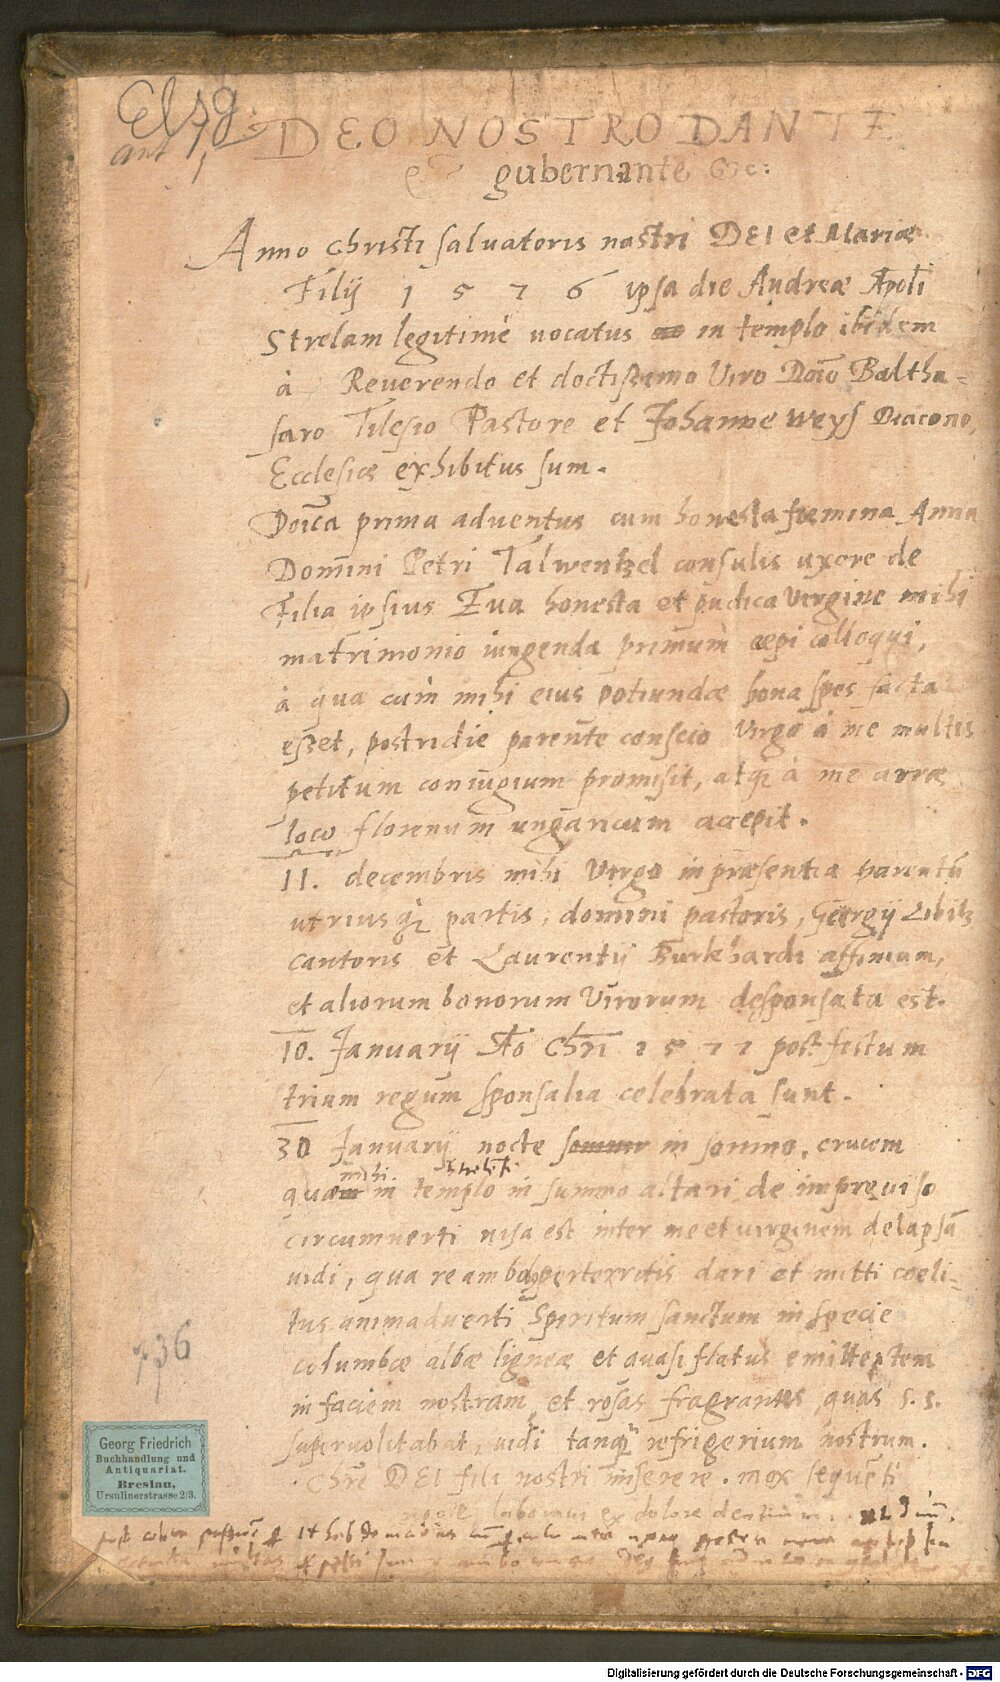 Elsg.
ant 1,
DEO NOSTRO DANTE
& gubernante &c:
Anno Christi salvatoris nostri DEI et Mariæ
Filij 1576 ipsa die Andreæ Apoli
Strelam legitimè uocatus in templo ibidem
à Reuerendo et doctißimo Viro Dōīo Baltha=
saro Tilesio Pastore et Johanne Weys Diacono,
Ecclesiæ exhibitus sum.
Doīca prima aduentus cum honesta fœmina Anna
Domini Petri Talwentzel consulis uxore de
Filia ipsius Eua honesta et pudica Virgine mihi
matrimonio iungenda primum cœpi colloqui,
à qua cum mihi eius potiundæ bona spes facta
eßet, postridie parente conscio Virgo à me multis
petitum coniugium promisit, atq; à me arræ
loco florenum ungaricum accepit.
11. decembris mihi Virgo in præsentia parentū
utriusq; partis, domini pastoris, Georgij Libitz
cantoris et Laurentij Burkhardi affinium,
et aliorum bonorum Virorum desponsata est.
10. Januarij Ao Chri 1577 post festum
trium regum sponsalia celebrata sunt.
30 Januarij nocte in somno, crucem
quæ mihi in templo in summo altari de improuiso
circumuerti uisa est inter me et uirginem delapsā
uidi, qua re ambobus perterritis dari et mitti cœli-
tus animaduerti Spiritum sanctum in specie
columbæ albæ ligneæ et quasi flatus emittentem
in faciem nostram, et rosas fragrantes, quas S. S.
superuolitabat, uidi tanq̃ refrigerium nostrum.
Chre DEI fili nostri miserere. mox sequēti
nocte laboraui ex dolore dentium
736
Georg Friedrich
Buchhandlung und
Antiquariat.
Breslau,
Ursulinerstrasse 2/3.
Digitalisierung gefördert durch die Deutsche Forschungsgemeinschaft - DFG